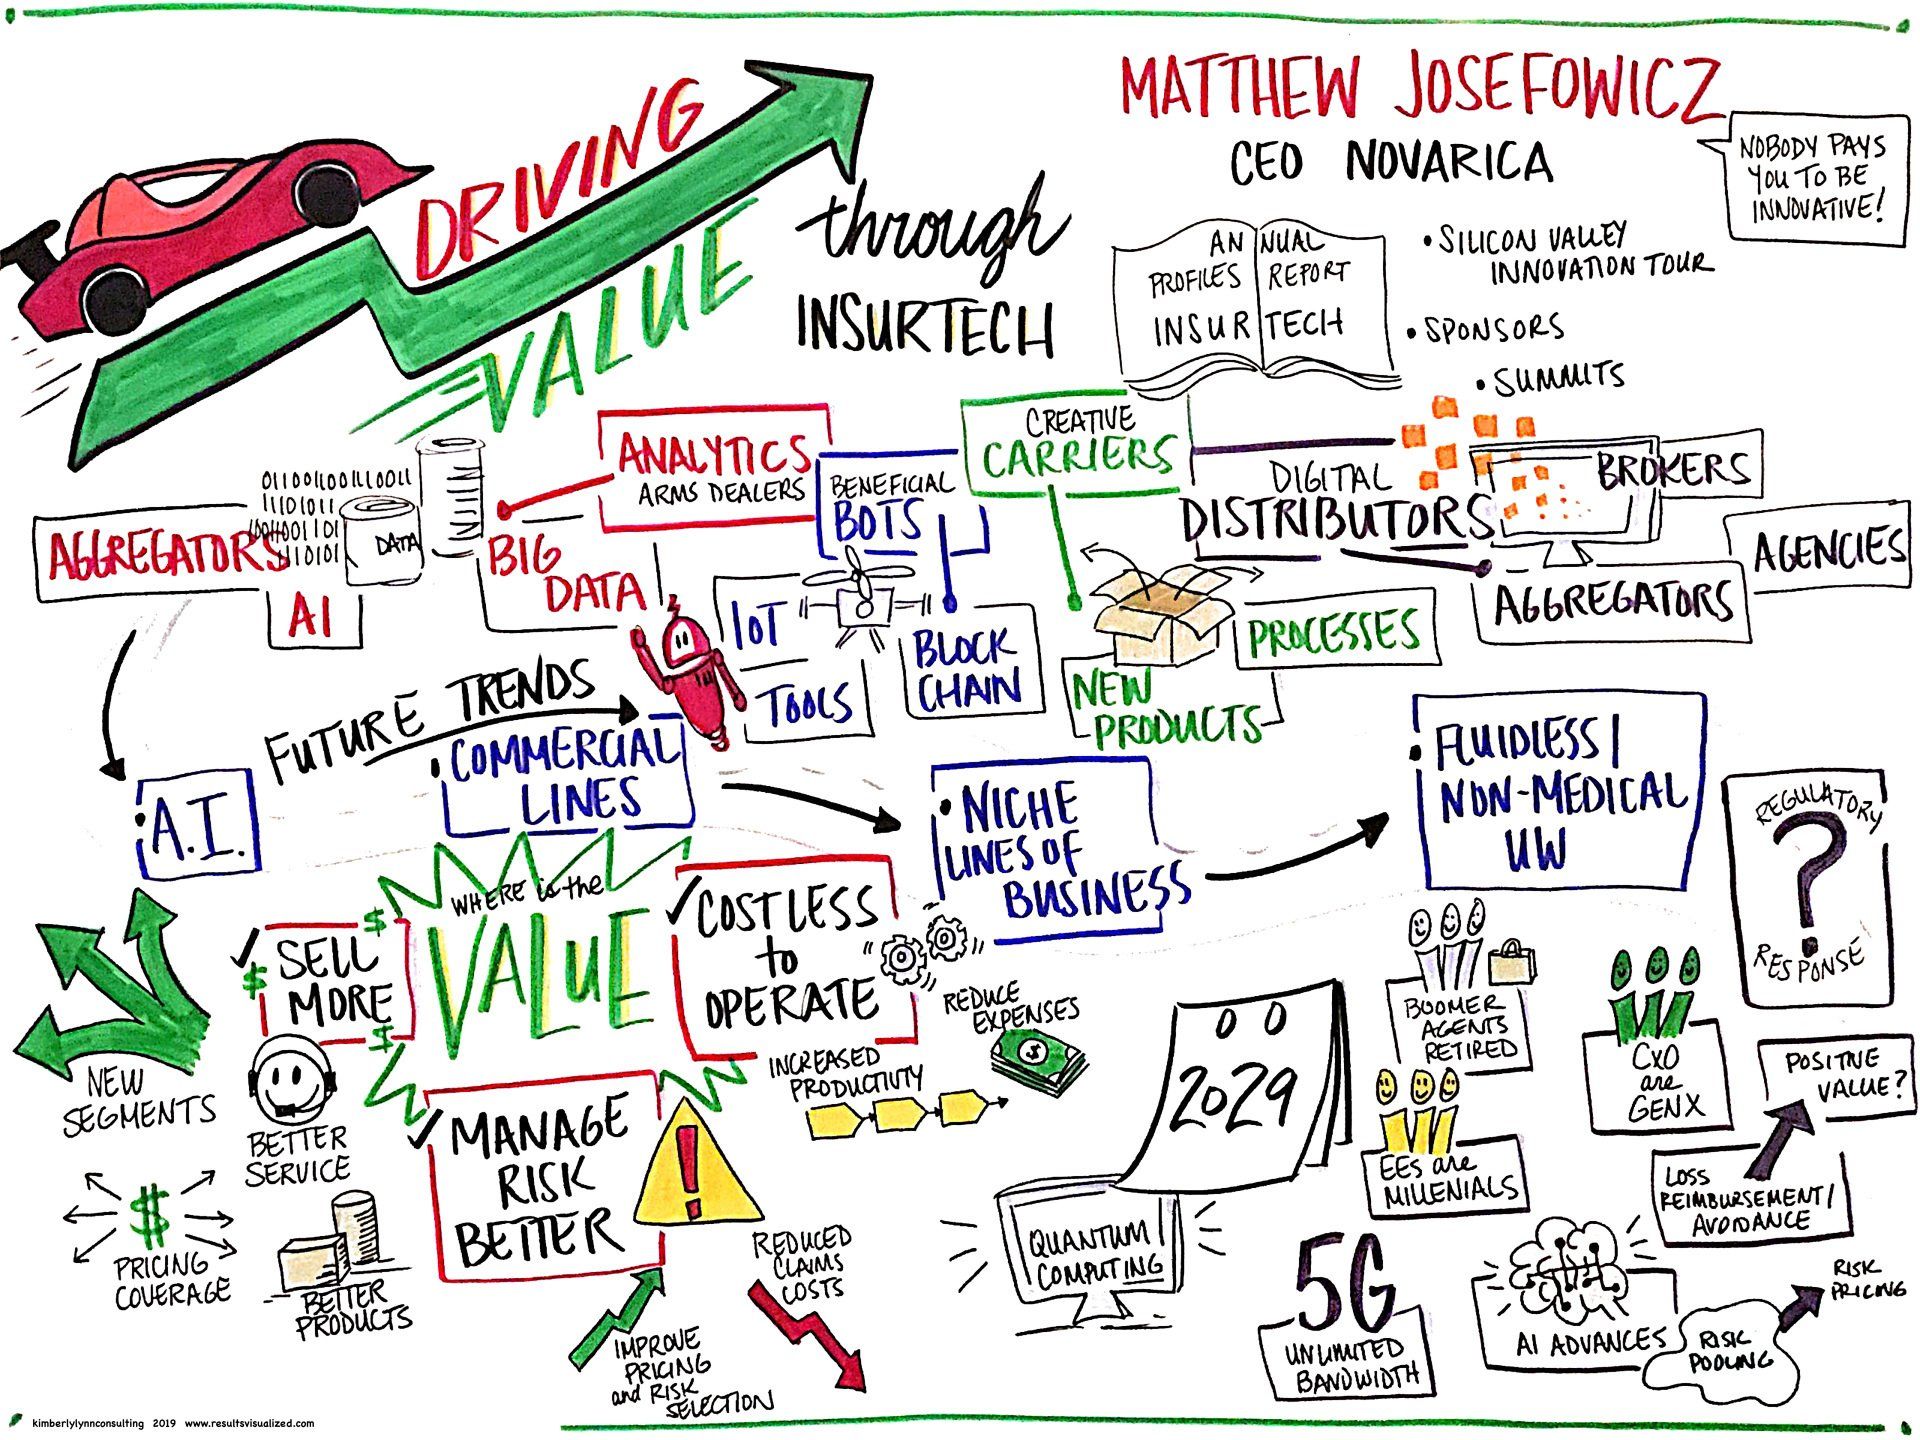 DRIVING
VALUE
through
INSURTECH
MATTHEW JOSEFOWICZ
CEO NOVARICA
NOBODY PAYS
YOU TO BE
INNOVATIVE!
ANNUAL
PROFILES REPORT
INSURTECH
• SILICON VALLEY
INNOVATION TOUR
• SPONSORS
• SUMMITS
AGGREGATORS
011001100111001 1
1101011
1101
110101
DATA
AI
BIG
DATA
ANALYTICS
ARMS DEALERS
BENEFICIAL
BOTS
IOT
TOOLS
BLOCK
CHAIN
CREATIVE
CARRIERS
NEW
PRODUCTS
PROCESSES
DIGITAL
DISTRIBUTORS
BROKERS
AGENCIES
AGGREGATORS
FUTURE TRENDS
• A.I.
• COMMERCIAL
LINES
• NICHE
LINES OF
BUSINESS
• FLUIDLESS/
NON-MEDICAL
UW
REGULATORY
?
RESPONSE
WHERE is the
VALUE
✓ SELL
MORE
$
$
$
NEW
SEGMENTS
BETTER
SERVICE
$
PRICING
COVERAGE
BETTER
PRODUCTS
✓ COST LESS
to
OPERATE
REDUCE
EXPENSES
$
INCREASED
PRODUCTIVITY
✓ MANAGE
RISK
BETTER
!
REDUCED
CLAIMS
COSTS
IMPROVE
PRICING
and RISK
SELECTION
2029
QUANTUM
COMPUTING
5G
UNLIMITED
BANDWIDTH
BOOMER
AGENTS
RETIRED
EEs are
MILLENIALS
CXO
are
GENX
POSITIVE
VALUE?
LOSS
REIMBURSEMENT/
AVOIDANCE
AI ADVANCES
RISK
POOLING
RISK
PRICING
kimberlylynnconsulting 2019 www.resultsvisualized.com